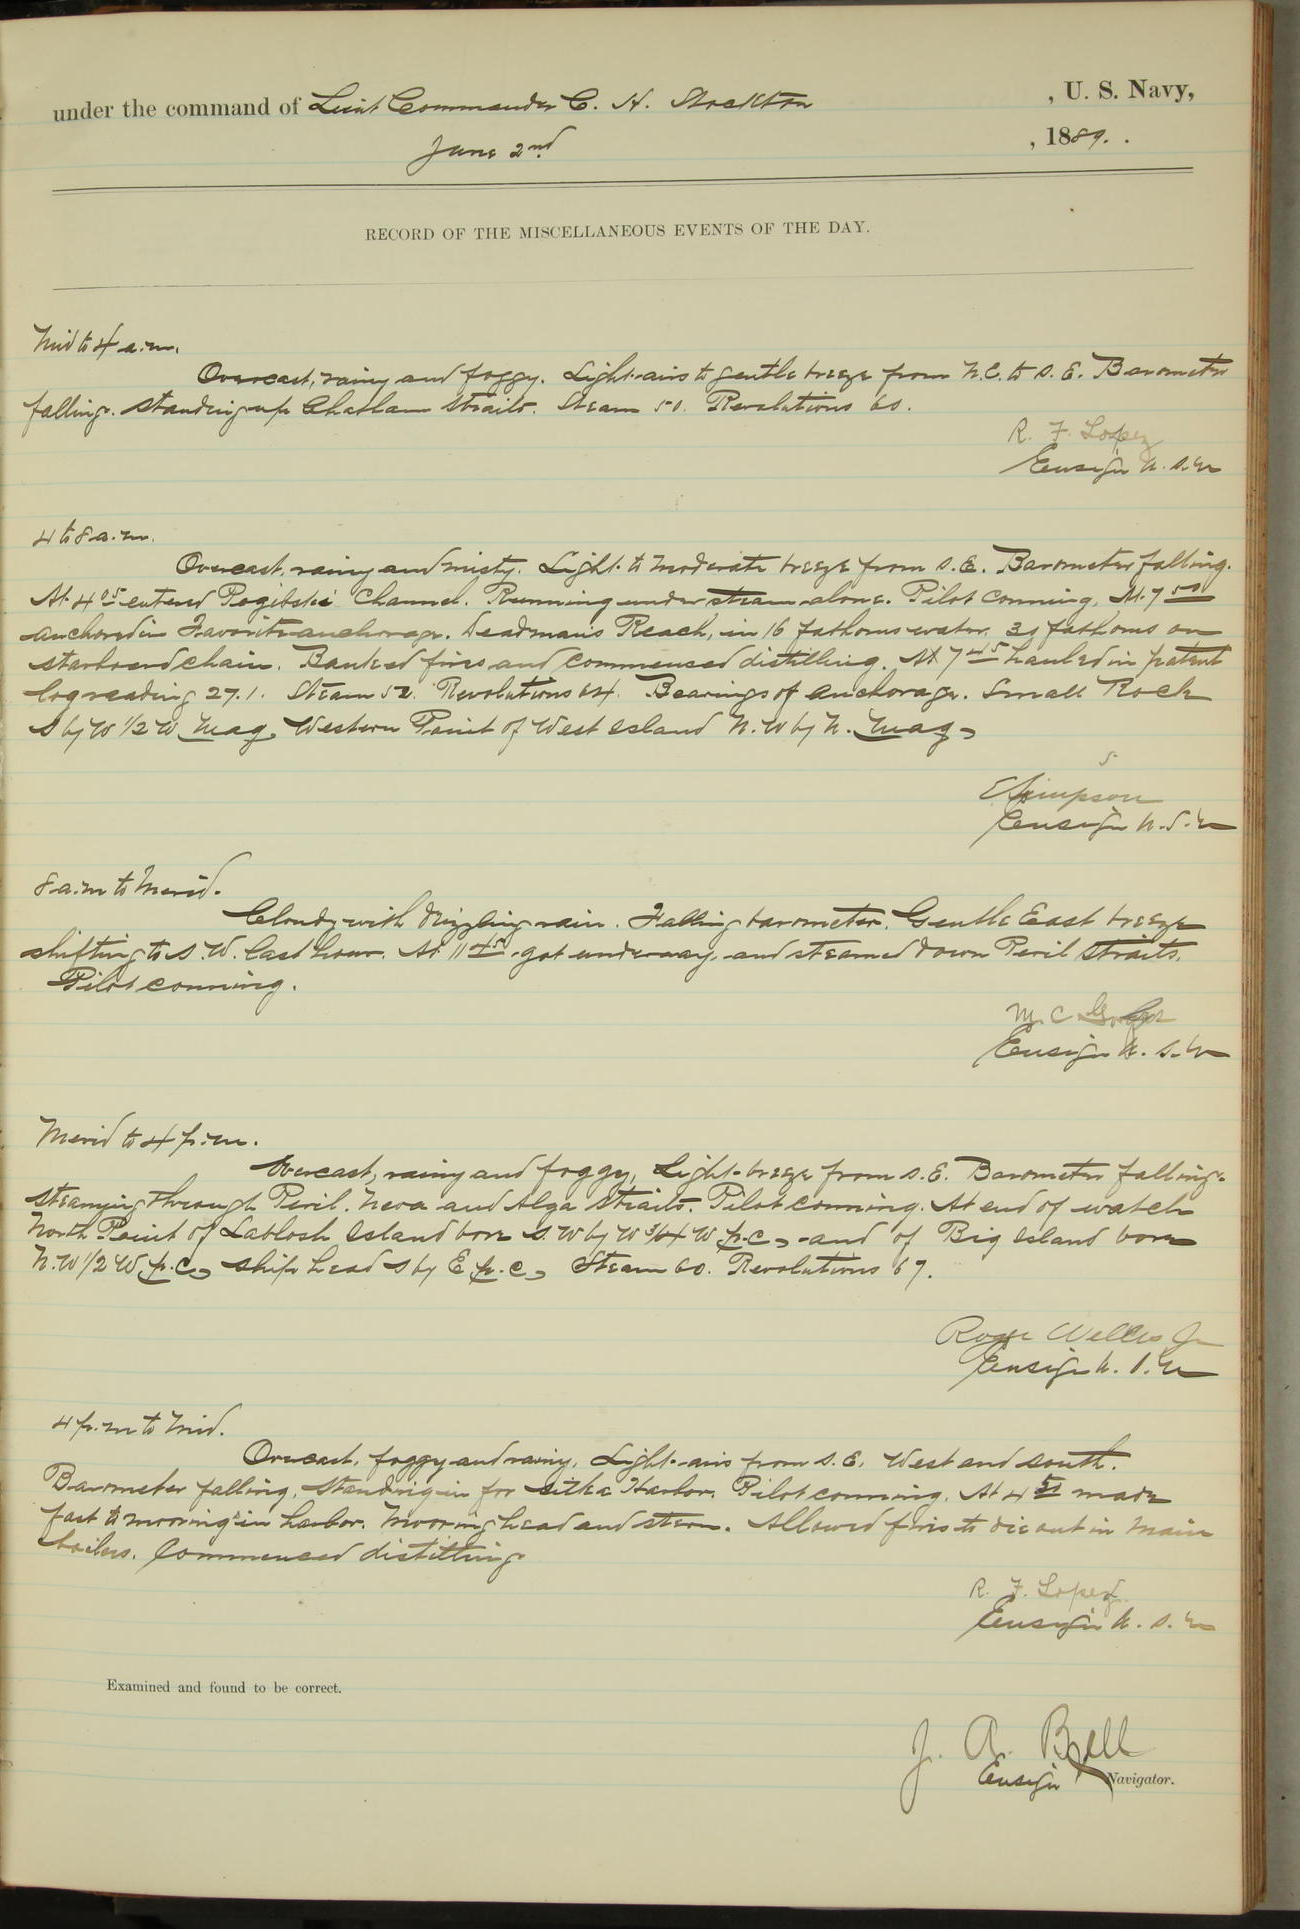 under the command of Lieut Commander C. H. Stockton , U. S. Navy,
June 2nd , 1889. .
RECORD OF THE MISCELLANEOUS EVENTS OF THE DAY.
Mid to 4 a.m.
Overcast, rainy and foggy. Light airs to gentle breeze from N.E. to S.E. Barometer
falling. Standing up Chatham Straits. Steam 50. Revolutions 60.
R. F. Lopez
Ensign U.S.N
4 to 8 a.m.
Overcast, rainy and misty. Light to moderate breeze from S.E. Barometer falling.
At 4 05 entered Pogibshi Channel. Running under steam alone. Pilot conning. At 7 50
anchored in Favorite anchorage. Deadman's Reach, in 16 fathoms water. 39 fathoms on
starboard chain. Banked fires and commenced distilling. At 7 45 hauled in patent
log reading 27.1. Steam 52. Revolutions 64. Bearings of anchorage. Small Rock
S by W 1/2 W mag. Western Point of West Island N.W by N. mag.
E Simpson
Ensign U.S.N
8 a.m to Merid.
Cloudy with drizzling rain. Falling barometer. Gentle East breeze
shifting to S.W. last hour. At 11 45 got underway, and steamed down Peril Straits.
Pilot conning.
M. C
Ensign U.S.N
Merid to 4 p.m.
Overcast, rainy and foggy. Light breeze from S.E. Barometer falling.
Steaming through Peril. Neva and Olga Straits. Pilot conning. At end of watch
North Point of Island bore S.W by W 3/4 W p.c., and of Big Island bore
N.W 1/2 W p.c., ship head S by E p.c., Steam 60. Revolutions 67.
Roger Welles Jr
Ensign U.S.N
4 p.m to Mid.
Overcast, foggy and rainy. Light airs from S.E. West and South.
Barometer falling. Standing in for Sitka Harbor. Pilot conning. At 4 made
fast to moorings in harbor. Mooring head and stern. Allowed fires to die out in main
boilers. Commenced distilling
R. F. Lopez
Ensign U.S.N
Examined and found to be correct.
J. A. Bell
Ensign Navigator.